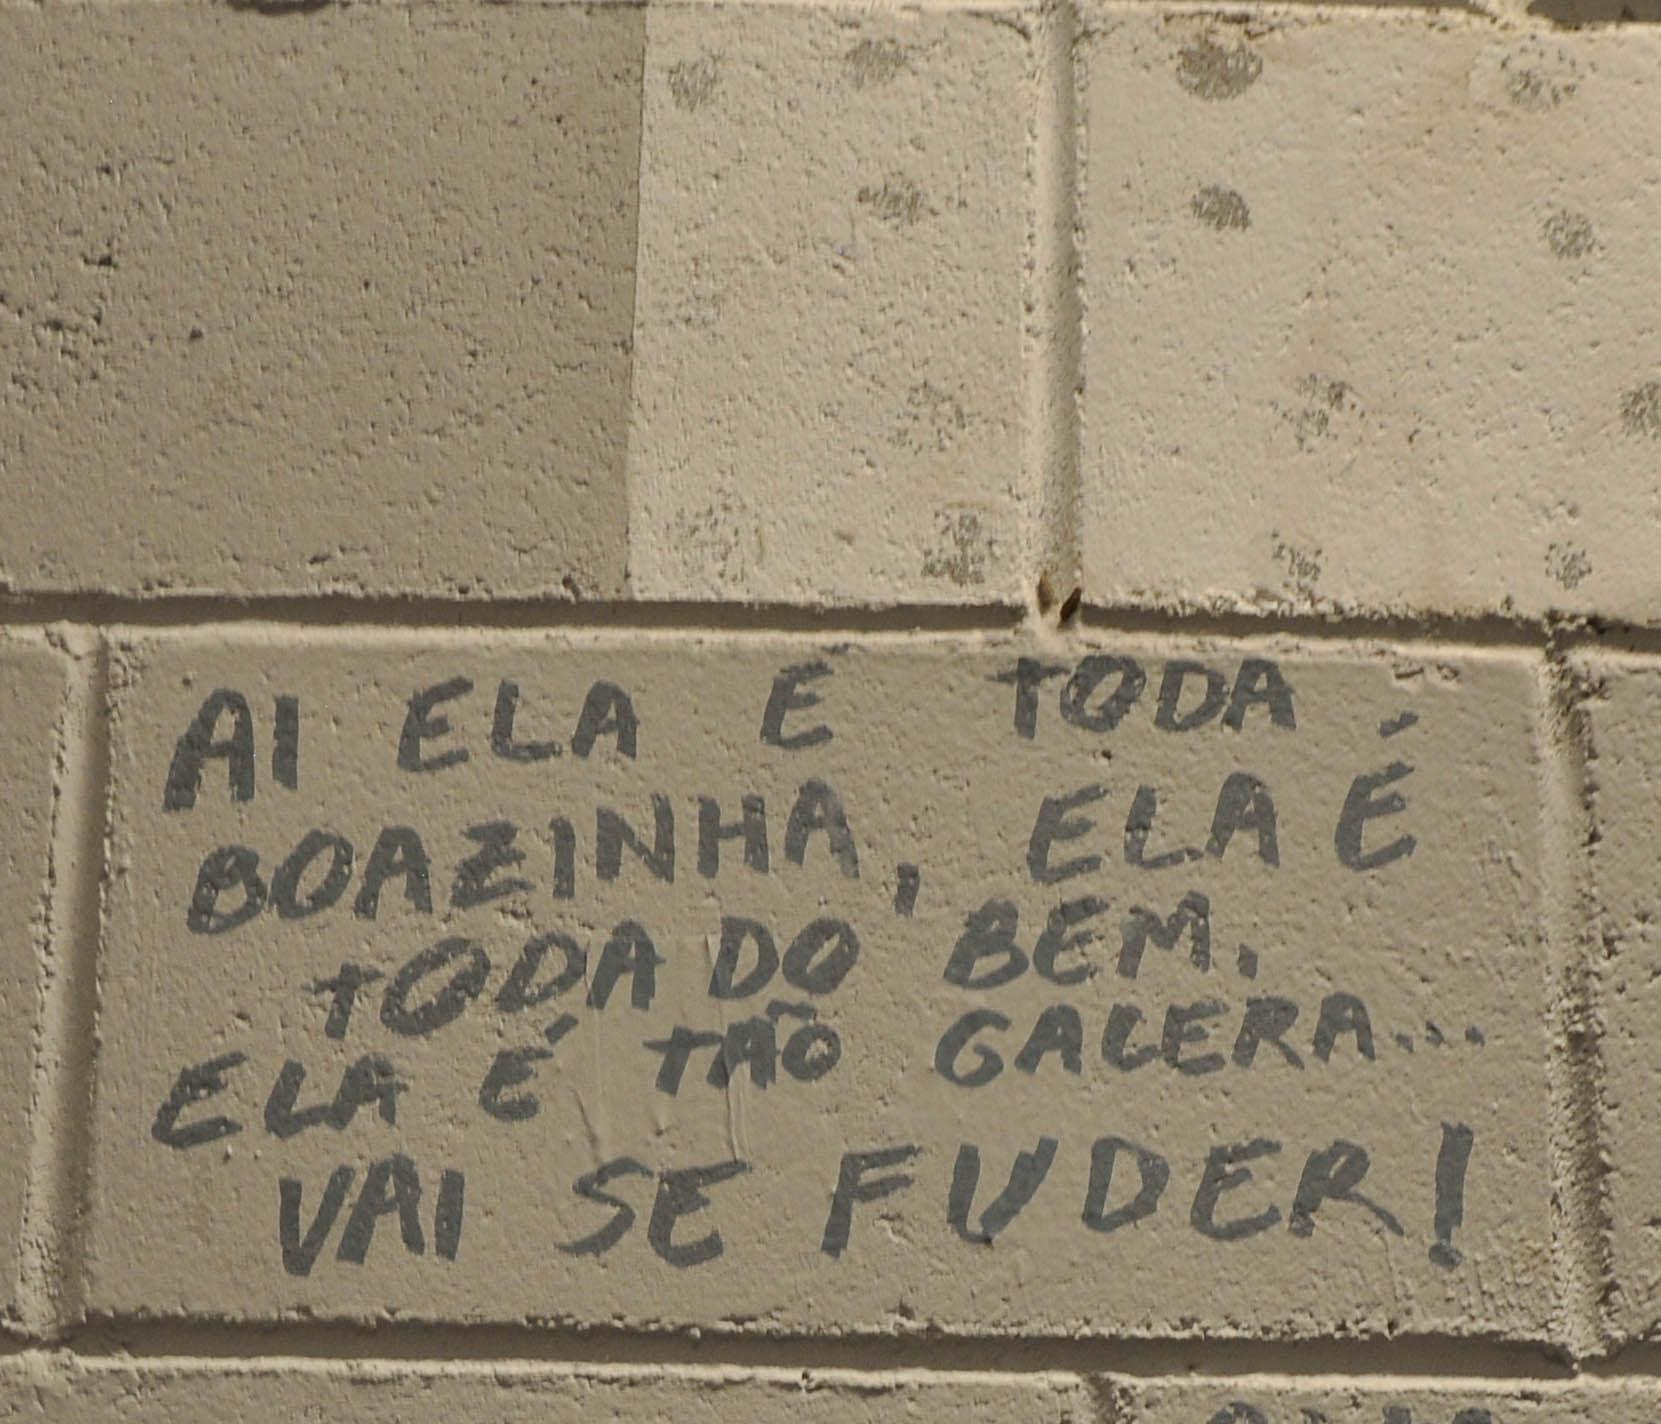 AI ELA E TODA
BOAZINHA, ELA É
TODA DO BEM.
ELA É TÃO GALERA...
VAI SE FUDER!